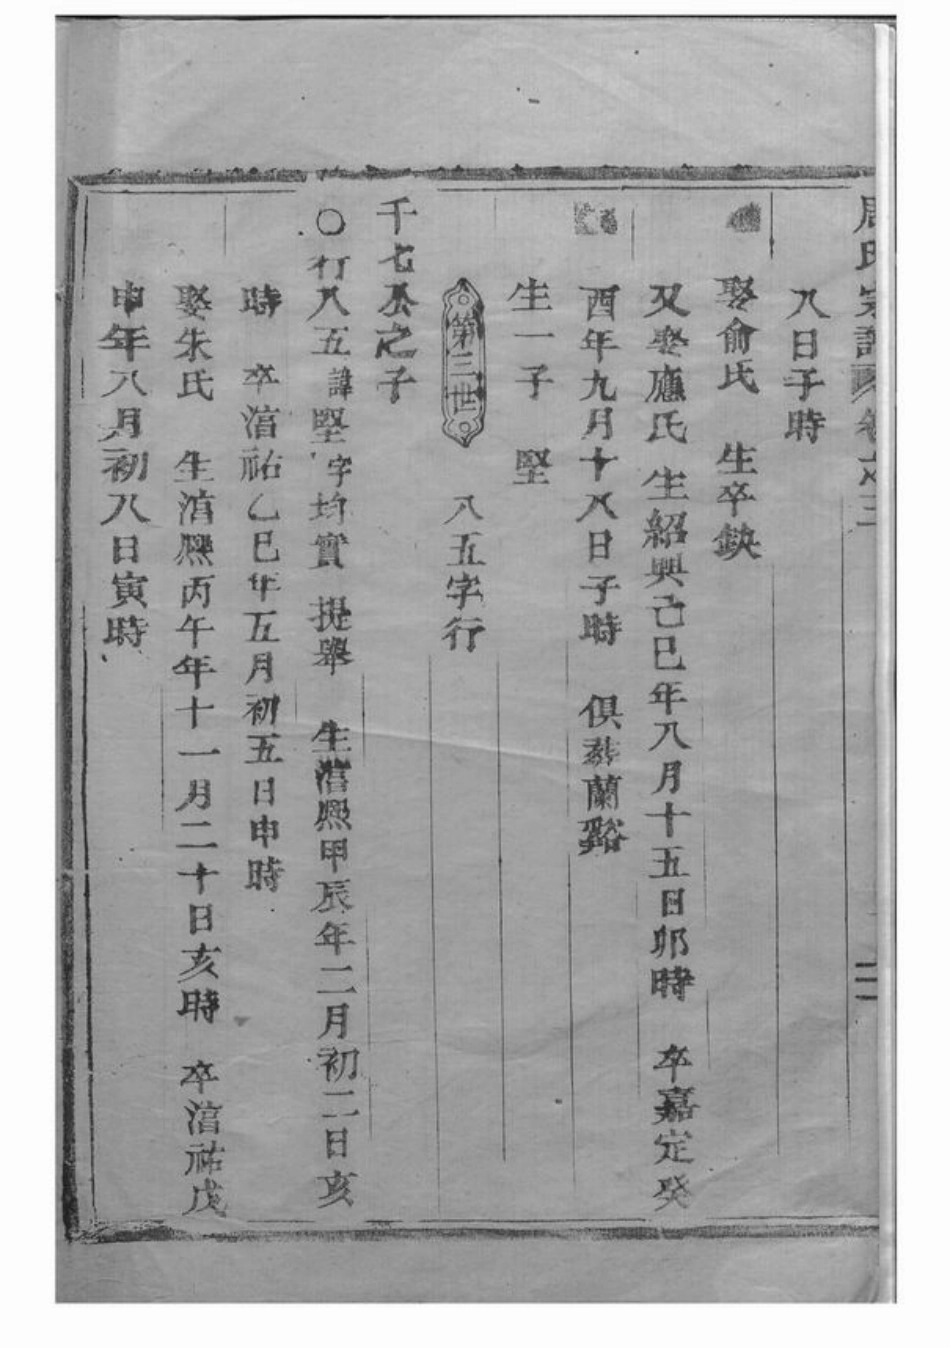 周氏宗譜 卷之三 二
八日子時
娶俞氏 生卒缺
又娶應氏 生紹興己巳年八月十五日卯時 卒嘉定癸
酉年九月十八日子時 俱葬蘭谿
生一子 堅
第三世 八五字行
千七公之子
○行八五諱堅字均實 提舉 生淳熙甲辰年二月初二日亥
時 卒湻祐乙巳年五月初五日申時
娶朱氏 生湻熈丙午年十一月二十日亥時 卒湻祐戊
申年八月初八日寅時